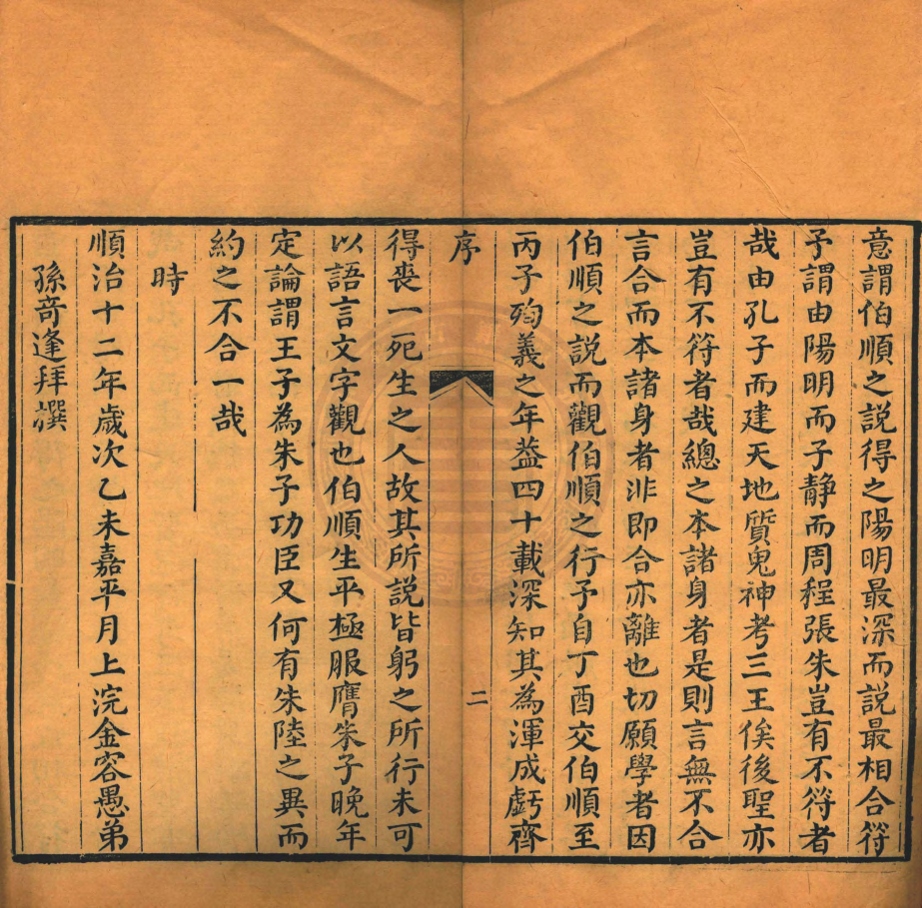 意謂伯順之説得之陽明最深而説最相合符
予謂由陽明而子静而周程張朱豈有不符者
哉由孔子而建天地質鬼神考三王俟後聖亦
豈有不符者哉總之本諸身者是則言無不合
言合而本諸身者非即合亦離也切願學者因
伯順之説而觀伯順之行予自丁酉交伯順至
丙子殉義之年葢四十載深知其為渾成虧齊
序
二
得喪一死生之人故其所説皆躬之所行未可
以語言文字觀也伯順生平極服膺朱子晚年
定論謂王子為朱子功臣又何有朱陸之異而
約之不合一哉
時
順治十二年歲次乙未嘉平月上浣金容愚弟
孫竒逢拜撰